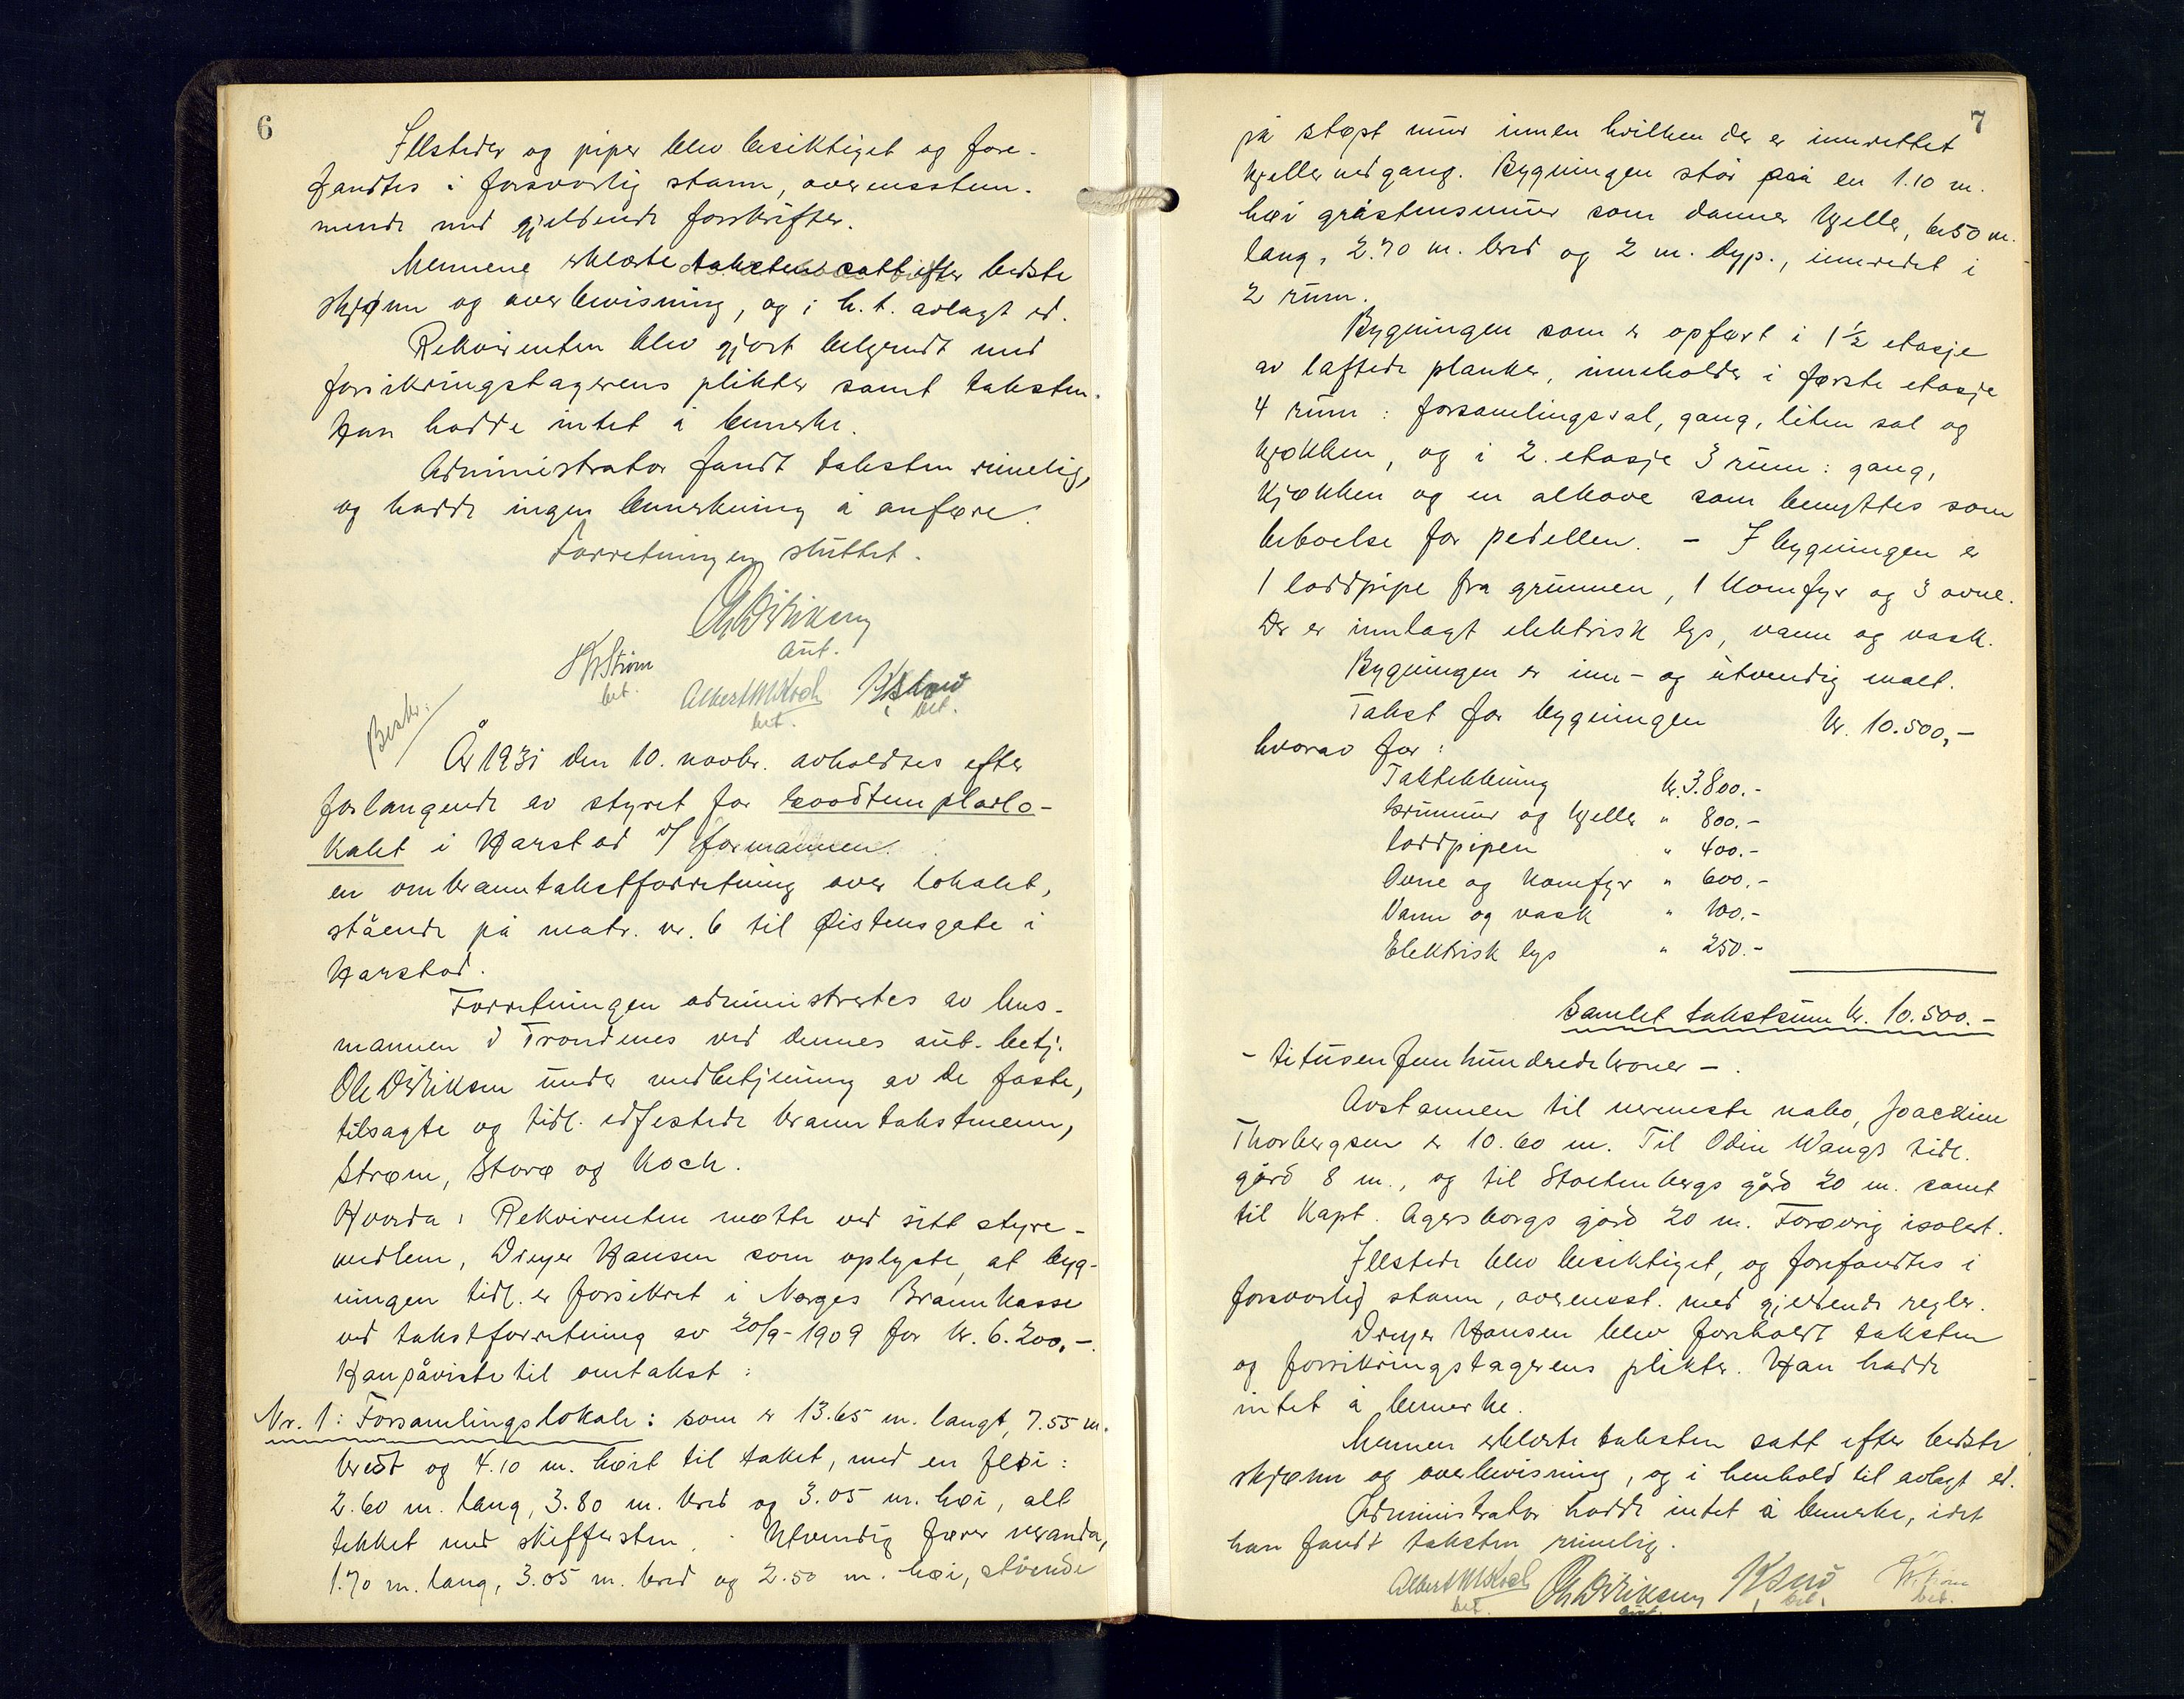 6
Ildsteder og piper blev besiktiget og fore-
fandtes i forsvarlig stann, overensstem-
mende med gjeldende forskrifter.
Mennene erklærte taksten satt efter bedste
skjønn og overbevisning, og i h. t. avlagt ed.
Rekvirenten blev gjort bekjendt med
forsikringstagerens plikter samt taksten.
Han hadde intet å bemerke.
Administrator fandt taksten rimelig,
og hadde ingen bemerkning å anføre.
Forretningen sluttet.
Ole Diriksen
aut.
Strøm
bet.
Albert M Koch
bet.
bet.
Beskr:
År 1931 den 10. novbr. avholdtes efter
forlangende av styret for Goodtemplarlo-
kalet i Harstad v/ formannen
en ombranntakstforretning over lokalet,
stående på matr. nr. 6 til Øistensgate i
Harstad.
Forretningen administrertes av lens-
mannen i Trondenes ved dennes aut. betj.
Ole Diriksen under medbetjening av de faste,
tilsagte og tidl. edfestede branntakstmenn,
Strøm, Storø og Koch.
Hvorda: Rekvirenten møtte ved sitt styre-
medlem, Dreyer Hansen som oplyste, at byg-
ningen tidl. er forsikret i Norges Brannkasse
ved takstforretning av 20/9-1909 for kr. 6.200,-.
Han påviste til omtakst:
Nr. 1: Forsamlingslokale: som er 13.65 m. langt, 7.55 m.
bredt og 4.10 m. høit til taket, med en fløi:
2.60 m. lang, 3.80 m. bred og 3.05 m. høi, alt
tekket med skiffersten. - Utvendig fører veranda,
1.70 m. lang, 3.05 m. bred og 2.50 m. høi, stående
7
på støpt mur innen hvilken der er innrettet
kjellernedgang. Bygningen står på en 1.10 m.
høi gråstensmur som danner kjeller, 6.50 m.
lang, 2.70 m. bred og 2 m. dyp., innredet i
2 rum.
Bygningen som er opført i 1½ etasje
av laftede planker, inneholder i første etasje
4 rum: forsamlingssal, gang, liten sal og
kjøkken, og i 2. etasje 3 rum: gang,
kjøkken og en alkove som benyttes som
beboelse for pedellen. - I bygningen er
1 loddpipe fra grunnen, 1 komfyr og 3 ovne.
Der er innlagt elektrisk lys, vann og vask.
Bygningen er inn- og utvendig malt.
Takst for bygningen kr. 10.500,-
hvorav for:
Taktekkning kr. 3.800.-
Grunmur og kjeller " 800.-
loddpipen " 400.-
Ovne og komfyr " 600.-
Vann og vask " 100.-
Elektrisk lys " 250.-
Samlet takstsum kr. 10.500.-
- titusenfemhundredekroner -.
Avstannen til nermeste nabo, Joachim
Thorbergsen er 10.60 m. Til Odin Wangs tidl.
gård 8 m., og til Stoltenbergs gård 20 m. samt
til Kapt. Agersborgs gård 20 m. Forøvrig isolert.
Ildstede blev besiktiget, og forefandtes i
forsvarlig stann, overensst. med gjeldende regler.
Dreyer Hansen blev forholdt taksten
og forsikringstagerens plikter. Han hadde
intet å bemerke.
Mennen erklærte taksten satt efter bedste
skjønn og overbevisning, og i henhold til avlagt ed.
Administrator hadde intet å bemerke, idet
han fandt taksten rimelig.
Albert M Koch
bet.
Ole Diriksen
aut.
bet.
Strøm
bet.